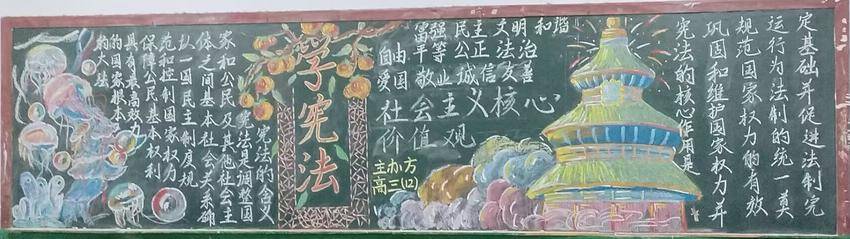 宪法的含义
宪法是调整国
家和公民及其他社会主
体之间基本社会关系确
认一国民主制度规
范和控制国家权力
保障公民基本权利
具有最高效力
的国家根本
的大法
学宪法
富强 民主 文明 和谐
自由 平等 公正 法治
爱国 敬业 诚信 友善
社会主义核心
价值观
主办方
高三(12)
宪法的核心作用是
巩固和维护国家权力并
规范国家权力的有效
运行为法制的统一奠
定基础并促进法制完